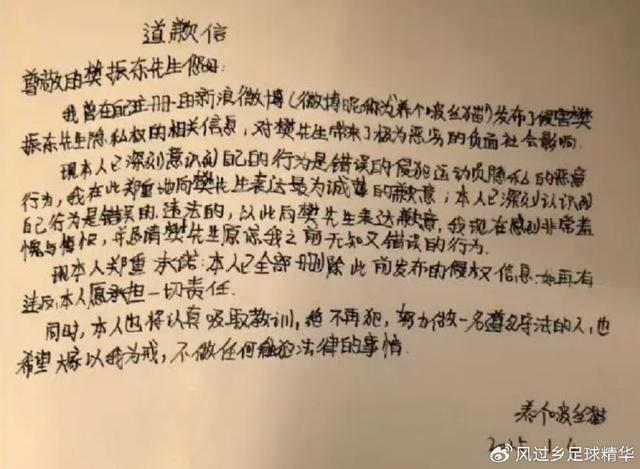 道歉信
尊敬的樊振东先生您好:
我曾在配注册一的新浪微博(微博昵称为养个波丝猫)发布了侵害樊
振东先生隐私权的相关信息,对樊先生带来了极为恶劣的负面社会影响.
现本人已深刻意识到自己的行为是错误的侵犯运动员隐私的恶意
行为,我在此郑重地向樊先生表达最为诚挚的歉意;本人已深刻认识到
自己行为是错误的.违法的,以此向樊先生表达歉意.我现在感到非常羞
愧与悔恨,并恳请樊先生原谅我之前无知又错误的行为.
现本人郑重承诺:本人已全部删除此前发布的侵权信息.如再有
违反,本人愿承担一切责任.
同时,本人也将认真吸取教训,绝不再犯,努力做一名遵纪守法的人,也
希望大家以我为戒,不做任何触犯法律的事情.
养个波丝猫
@风过乡足球精华